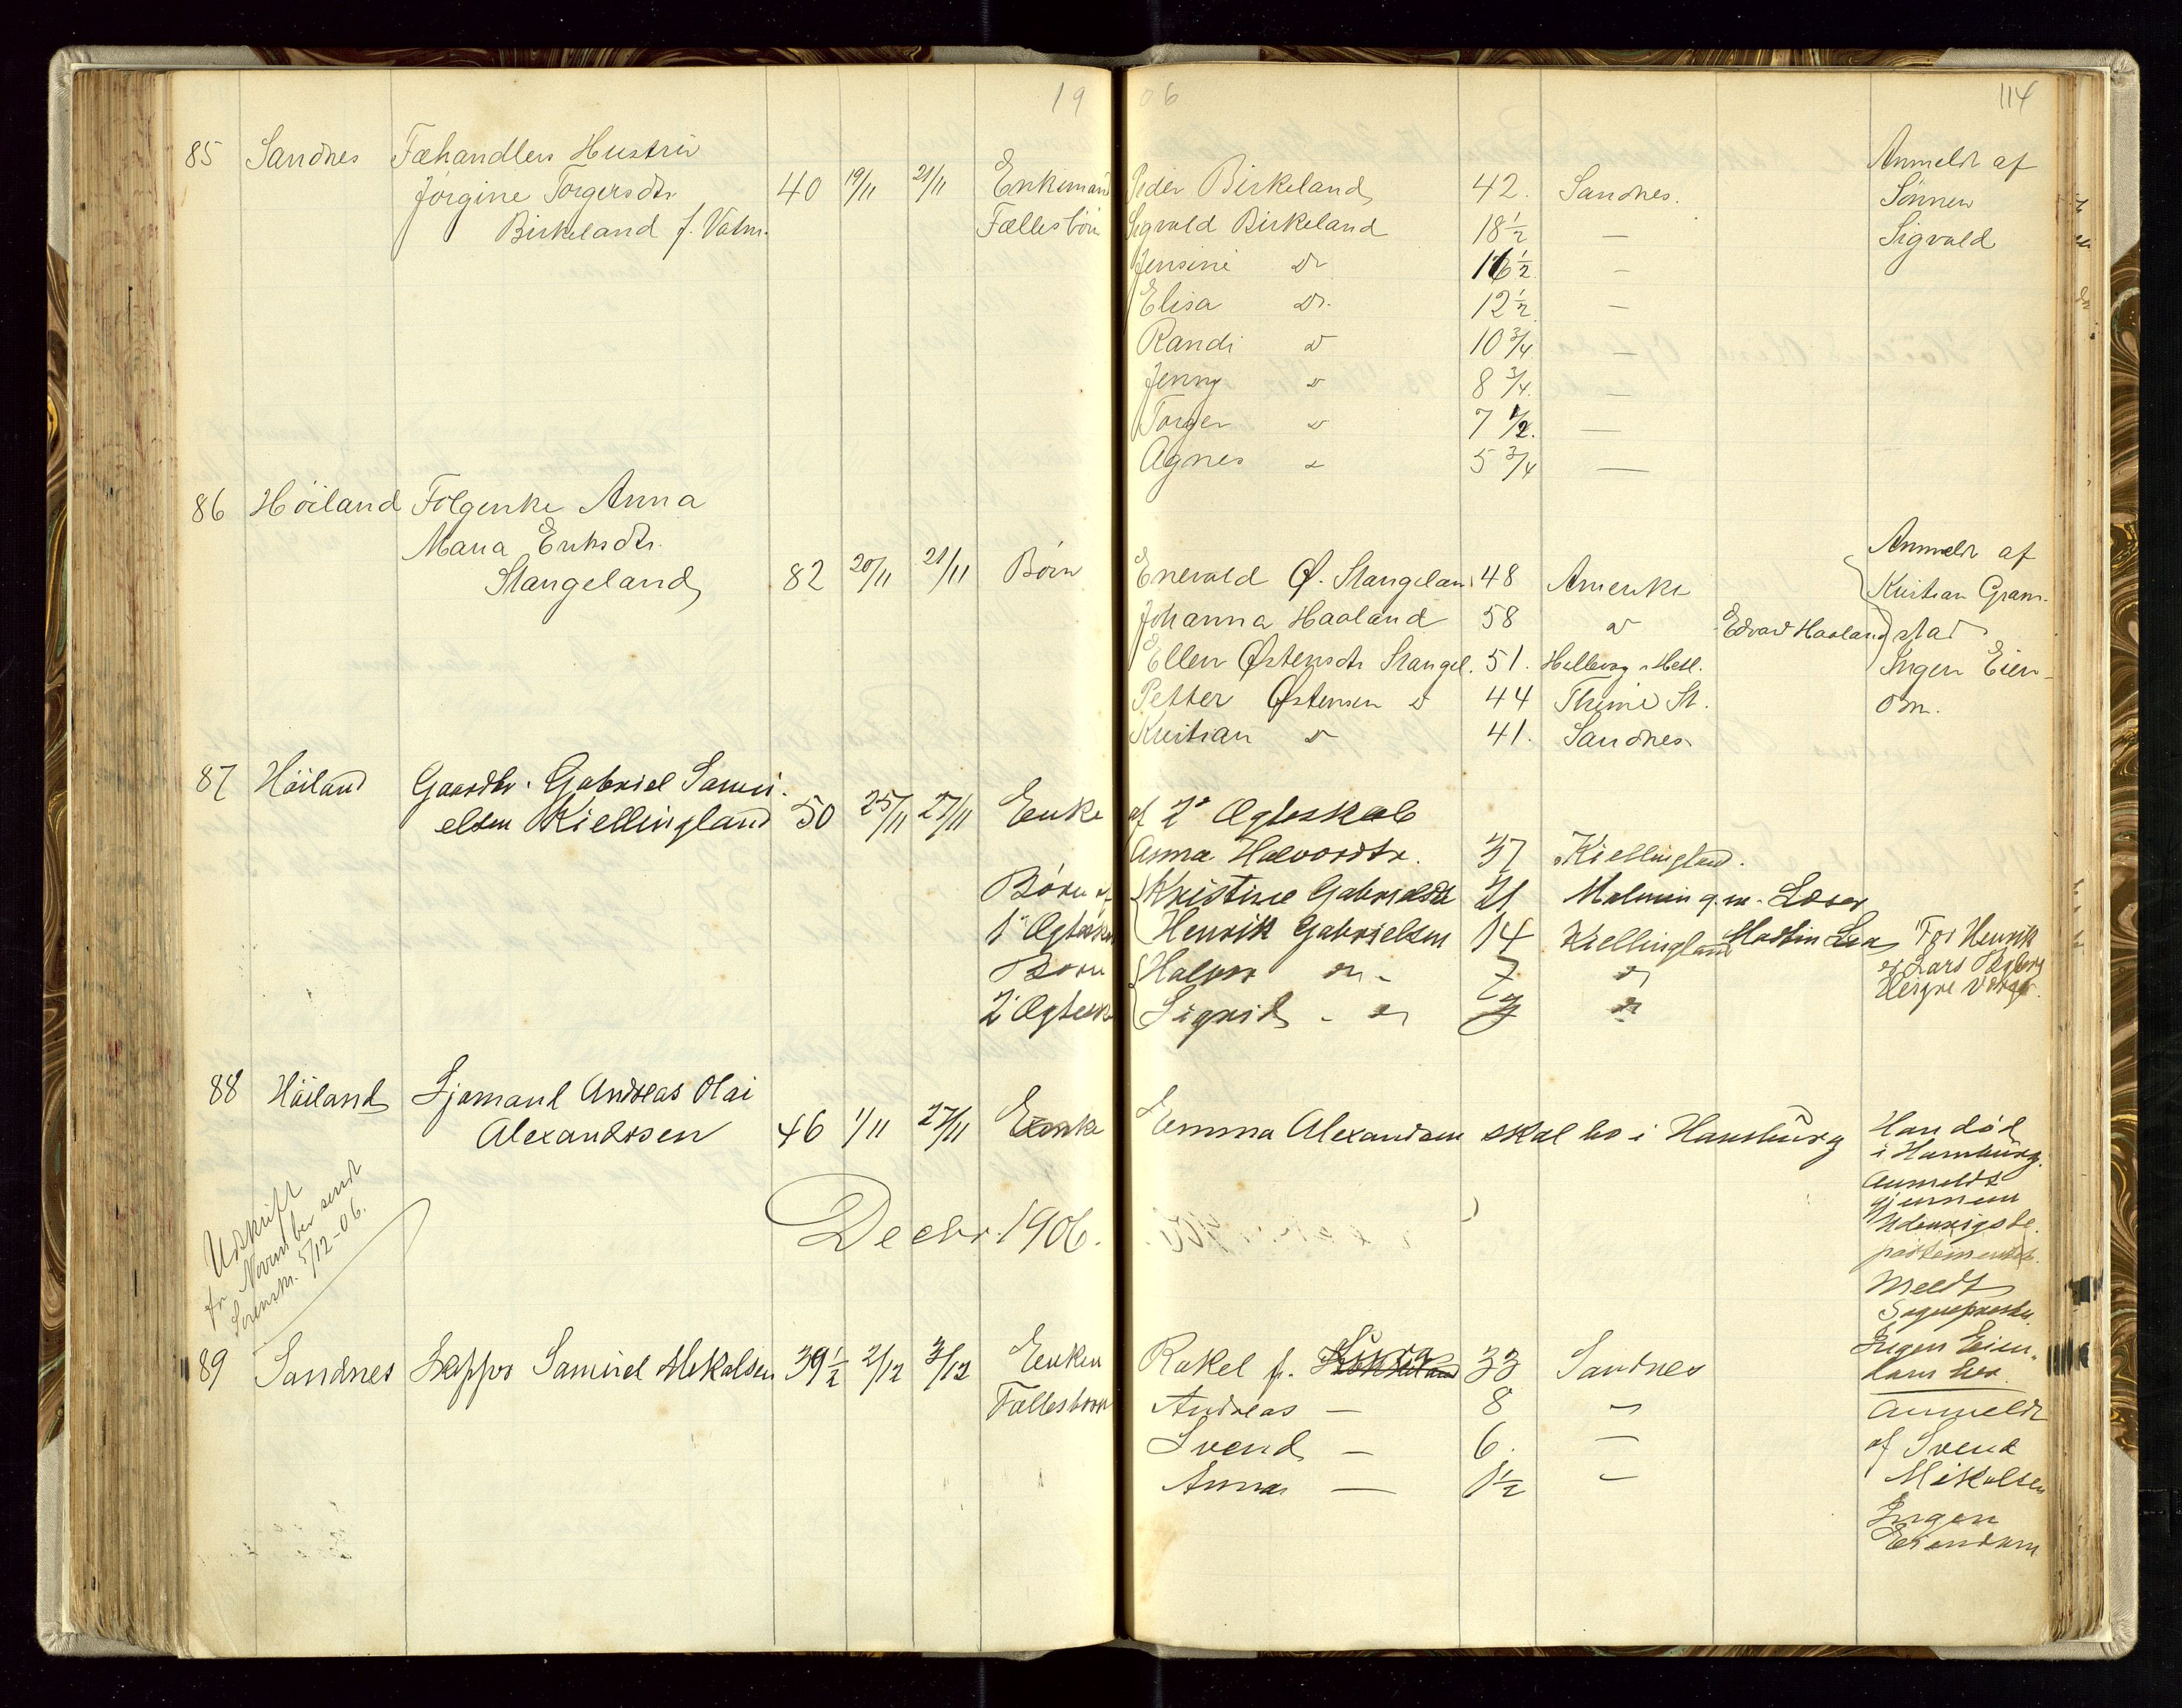 19 06 114
85 Sandnes Fæhandlers Hustru
Jørgine Torgersdtr 40 19/11 21/11 Enkemand Peder Birkeland 42. Sandnes. Anmeldt af
Birkeland f. Vatne. Fællesbørn Sigvald Birkeland 18 1/2 — Sønnen
Jensine do 16 1/2 — Sigvald
Elisa do. 12 1/2 —
Randi do 10 3/4 —
Jenny do 8 3/4. —
Torger do 7 1/2. —
Agnes do 5 3/4 —
86 Höiland Folgenke Anna
Maria Eriksdtr. Anmeldt af
Stangeland 82 20/11 21/11 Børn Enevald Ø. Stangeland 48 Amerika Kristian Gram-
Johanna Haaland 58 do Edvard Haaland stad
Ellen Østensdtr Stangel. 51. Ingen Eien-
Petter Østensen do 44 Thime St. om.
Kristian do 41. Sandnes
87 Höiland Gaardbr. Gabriel Samu-
elsen Kiellingland 50 25/11 27/11 Enke af 2' Ægteskab
Anna Halvordtr. 37 Kiellingland.
Børn af Kristine Gabrielsdt 21
1' Ægtesk Henrik Gabrielsen 14 Kiellingland For Henrik
Børn Halvor do - 7 do er Lars
2' Ægtesk Sigrid - do do
88 Höiland Sjømand Andreas Olai
Alexandersen 46 1/11 27/11 Enke Emma Alexandersen skal bo i Hamburg Han død
i Hamburg.
Anmeldt
gjennem
Udenrigsde
partementet.
Udskrift
fr. November sendt
Sorenskr. 5/12-06.
Decbr. 1906.
Meldt
Sogneprest
89 Sandnes Skipper Samuel Mikalsen 39 1/2 2/12 3/12 Enken Rakel f. 33 Sandnes Ingen Eien-
Fællesbørn Andreas — 8 — Anmeldt
Svend — 6. — af Svend
Anna — 1 1/2 — Mikalsen
Ingen
Eiendom